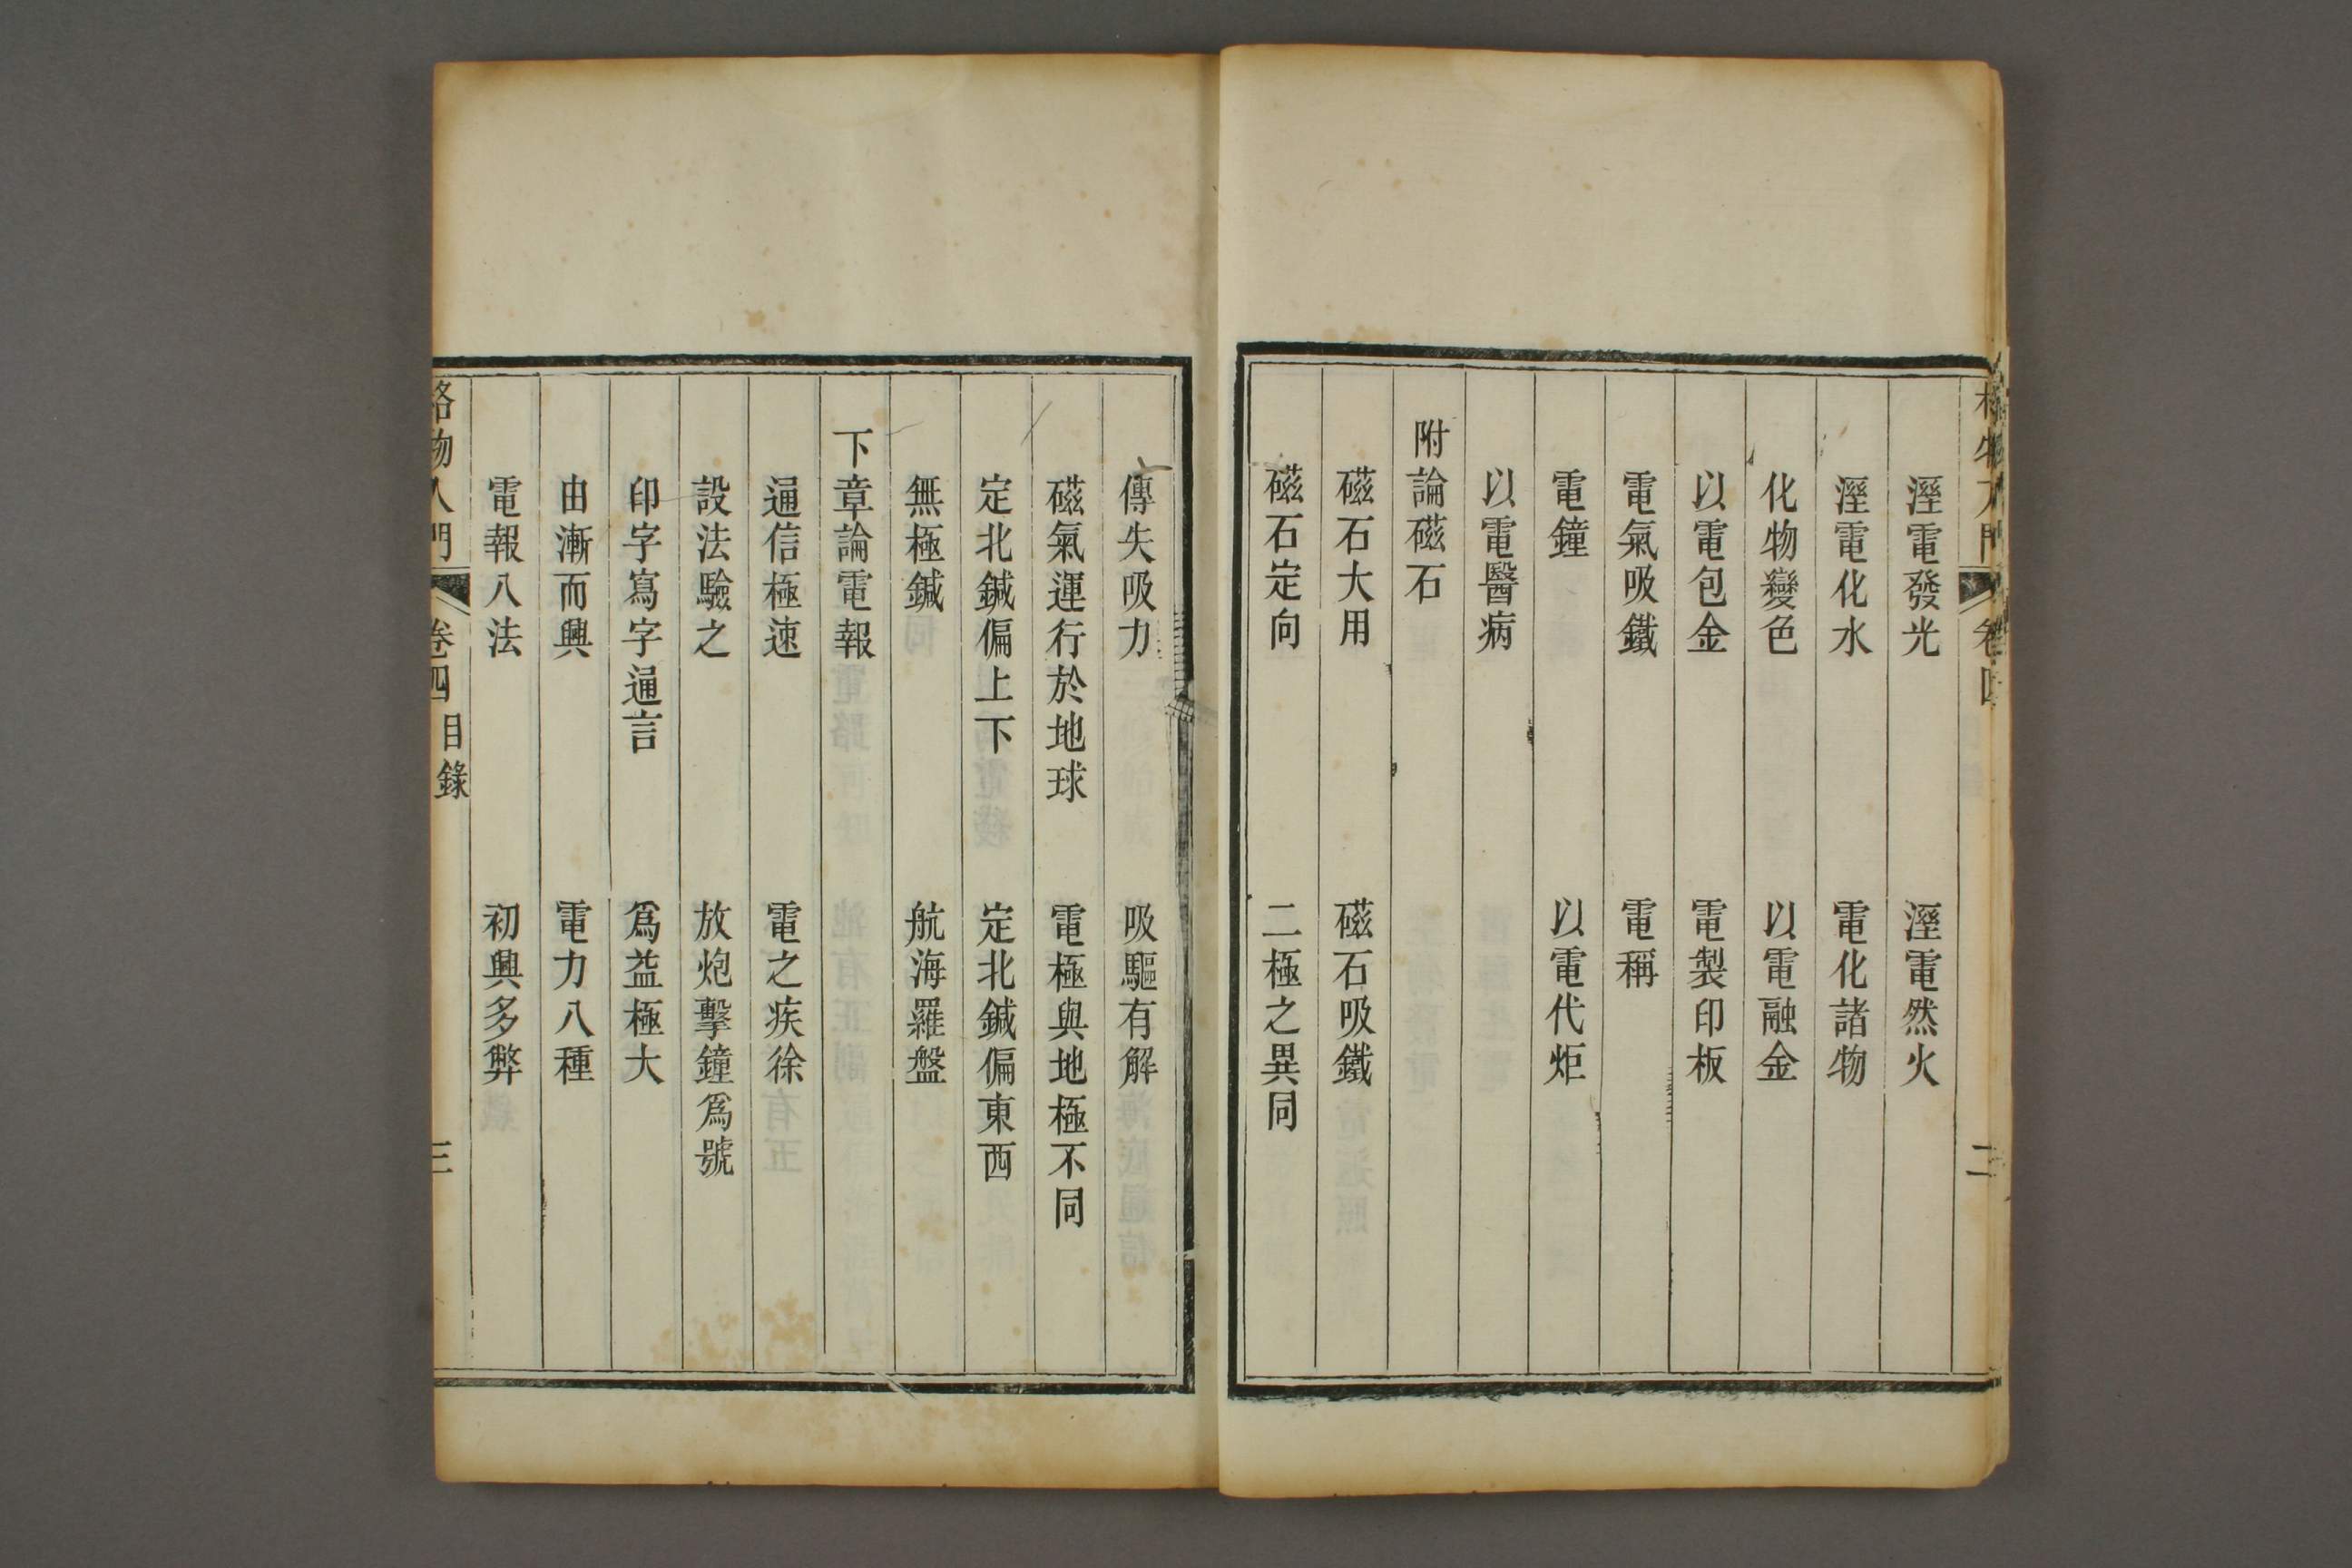 溼電發光　溼電然火
溼電化水　電化諸物
化物變色　以電融金
以電包金　電製印板
電氣吸鐵　電稱
電鐘　以電代炬
以電醫病
附論磁石
磁石大用　磁石吸鐵
磁石定向　二極之異同
傳失吸力　吸驅有解
磁氣運行於地球　電極與地極不同
定北鍼偏上下　定北鍼偏東西
無極鍼　航海羅盤
下章論電報
通信極速　電之疾徐
設法驗之　放炮擊鐘爲號
印字寫字通言　爲益極大
由漸而興　電力八種
電報八法　初興多弊
格物入門　卷四　目錄　三